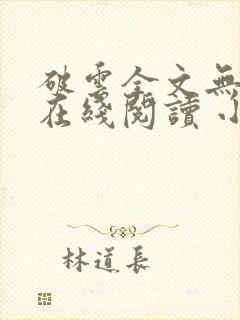 破雲全文無
在綫閱讀 小
林道長